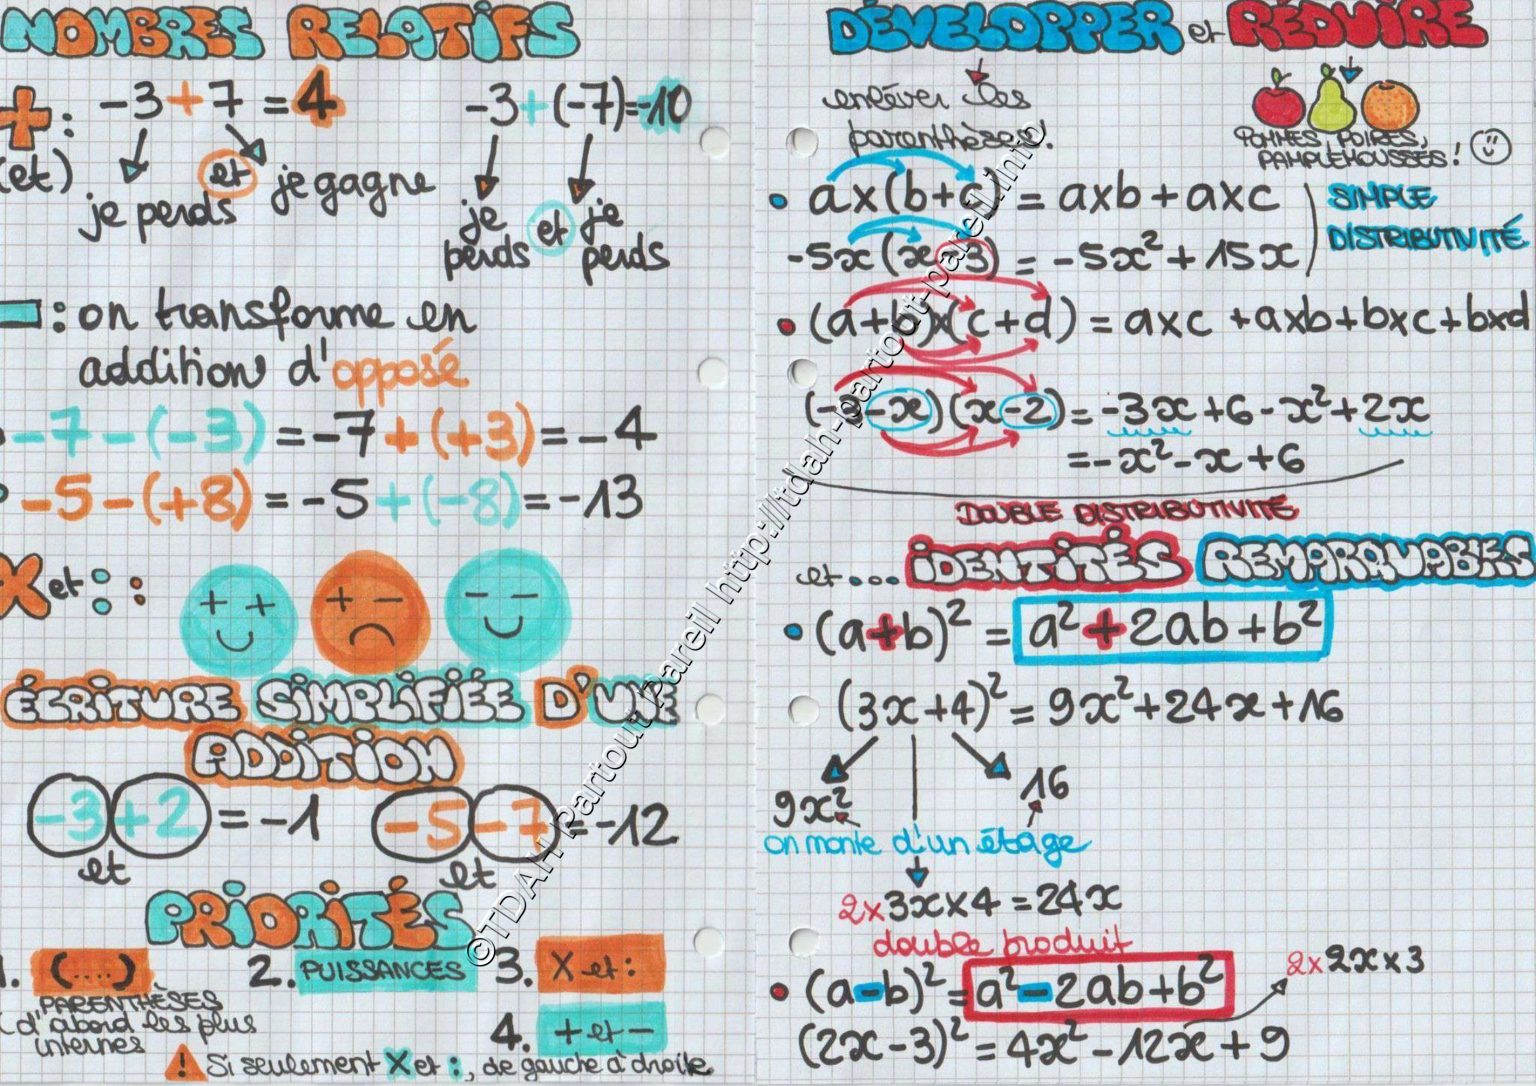 NOMBRES RELATIFS
+ : -3 + 7 = 4
-3 + (-7) = -10
(et)
je perds et je gagne
je perds et je perds
- : on transforme en
addition d'opposé
-7 - (-3) = -7 + (+3) = -4
-5 - (+8) = -5 + (-8) = -13
X et : :
+ + + - - -
ÉCRITURE SIMPLIFIÉE D'UNE
ADDITION
-3 +2 = -1
-5 -7 = -12
et
et
PRIORITÉS
1. (....) 2. PUISSANCES 3. X et :
PARENTHÈSES
(d'abord les plus
internes
4. + et -
! Si seulement X et :, de gauche à droite
DÉVELOPPER et RÉDUIRE
enléver les
parenthèses!
POMMES, POIRES,
PAMPLEMOUSSES!
• a x (b + c) = a x b + a x c
SIMPLE
DISTRIBUTIVITÉ
-5x (x - 3) = -5x² + 15x
• (a + b) x (c + d) = a x c + a x b + b x c + b x d
(-3 - x) (x - 2) = -3x + 6 - x² + 2x
= -x² - x + 6
DOUBLE DISTRIBUTIVITÉ
et... IDENTITÉS REMARQUABLES
• (a + b)² = a² + 2ab + b²
(3x + 4)² = 9x² + 24x + 16
9x²
16
on monte d'un étage
2 x 3x x 4 = 24x
double produit
• (a - b)² = a² - 2ab + b²
2 x 2x x 3
(2x - 3)² = 4x² - 12x + 9
©TDAH Partout Pareil http://tdah-partout-pareil.info